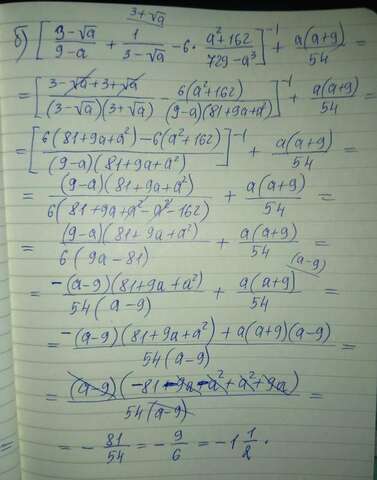 3+√a
б) [ (3-√a)/(9-a) + 1/(3-√a) - 6 · (a²+162)/(729-a³) ]⁻¹ + a(a+9)/54 =
= [ (3-√a+3+√a)/((3-√a)(3+√a)) - 6(a²+162)/((9-a)(81+9a+a²)) ]⁻¹ + a(a+9)/54 =
= [ (6(81+9a+a²)-6(a²+162))/((9-a)(81+9a+a²)) ]⁻¹ + a(a+9)/54 =
= (9-a)(81+9a+a²)/(6(81+9a+a²-a²-162)) + a(a+9)/54 =
= (9-a)(81+9a+a²)/(6(9a-81)) + a(a+9)/54 =
(a-9)
= -(a-9)(81+9a+a²)/(54(a-9)) + a(a+9)/54 =
= (-(a-9)(81+9a+a²)+a(a+9)(a-9))/(54(a-9)) =
= (a-9)(-81-9a-a²+a²+9a)/(54(a-9)) =
= - 81/54 = - 9/6 = -1 1/2.